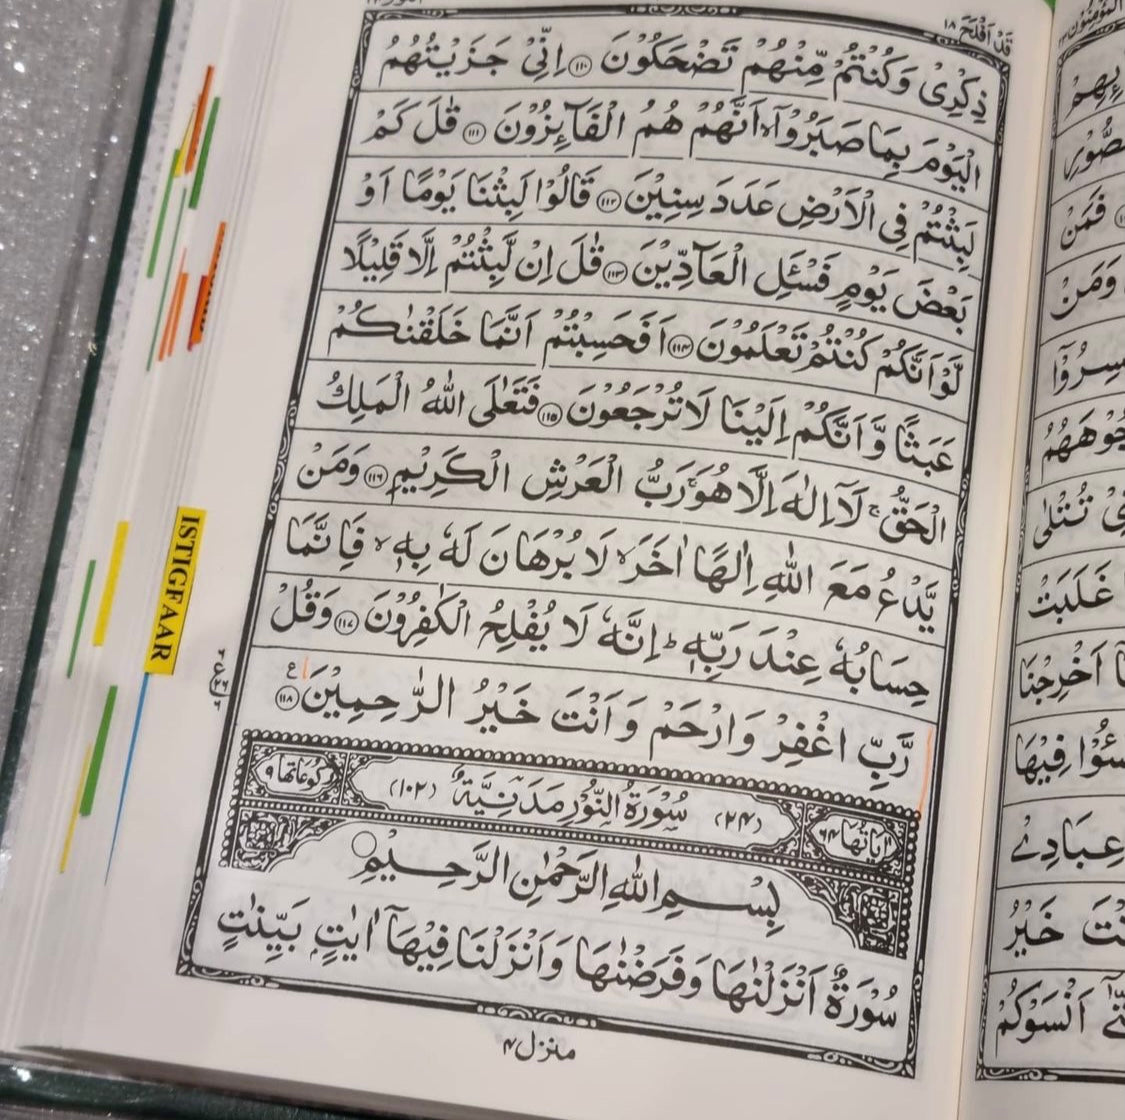 قَدْ اَفْلَحَ ١٨
ذِكْرِىْ وَكُنْتُمْ مِّنْهُمْ تَضْحَكُوْنَ ﴿١١٠﴾ اِنِّىْ جَزَيْتُهُمُ
الْيَوْمَ بِمَا صَبَرُوْۤا ۙ اَنَّهُمْ هُمُ الْفَآئِزُوْنَ ﴿١١١﴾ قٰلَ كَمْ
لَبِثْتُمْ فِى الْاَرْضِ عَدَدَ سِنِيْنَ ﴿١١٢﴾ قَالُوْا لَبِثْنَا يَوْمًا اَوْ
بَعْضَ يَوْمٍ فَسْـَٔلِ الْعَآدِّيْنَ ﴿١١٣﴾ قٰلَ اِنْ لَّبِثْتُمْ اِلَّا قَلِيْلًا
لَّوْ اَنَّكُمْ كُنْتُمْ تَعْلَمُوْنَ ﴿١١٤﴾ اَفَحَسِبْتُمْ اَنَّمَا خَلَقْنٰكُمْ
عَبَثًا وَّ اَنَّكُمْ اِلَيْنَا لَا تُرْجَعُوْنَ ﴿١١٥﴾ فَتَعٰلَى اللّٰهُ الْمَلِكُ
الْحَقُّ ۚ لَاۤ اِلٰهَ اِلَّا هُوَ ۚ رَبُّ الْعَرْشِ الْكَرِيْمِ ﴿١١٦﴾ وَمَنْ
يَّدْعُ مَعَ اللّٰهِ اِلٰهًا اٰخَرَ ۙ لَا بُرْهَانَ لَهٗ بِهٖ ۙ فَاِنَّمَا
حِسَابُهٗ عِنْدَ رَبِّهٖ ؕ اِنَّهٗ لَا يُفْلِحُ الْكٰفِرُوْنَ ﴿١١٧﴾ وَقُلْ
رَّبِّ اغْفِرْ وَارْحَمْ وَاَنْتَ خَيْرُ الرّٰحِمِيْنَ ﴿١١٨﴾ ع
اٰيَاتُهَا ٦٤ (٢٤) سُوْرَةُ النُّوْرِ مَدَنِيَّةٌ (١٠٢) رُكُوْعَاتُهَا ٩
بِسْمِ اللّٰهِ الرَّحْمٰنِ الرَّحِيْمِ
سُوْرَةٌ اَنْزَلْنٰهَا وَفَرَضْنٰهَا وَاَنْزَلْنَا فِيْهَاۤ اٰيٰتٍۭ بَيِّنٰتٍ
منزل ٤
ISTIGFAAR
فَمَنْ
وَمَنْ
تُتْلٰى
غَلَبَتْ
اَخْرِجْنَا
فِيْهَا
عِبَادِىْ
خَيْرُ
اَنْسَوْكُمْ